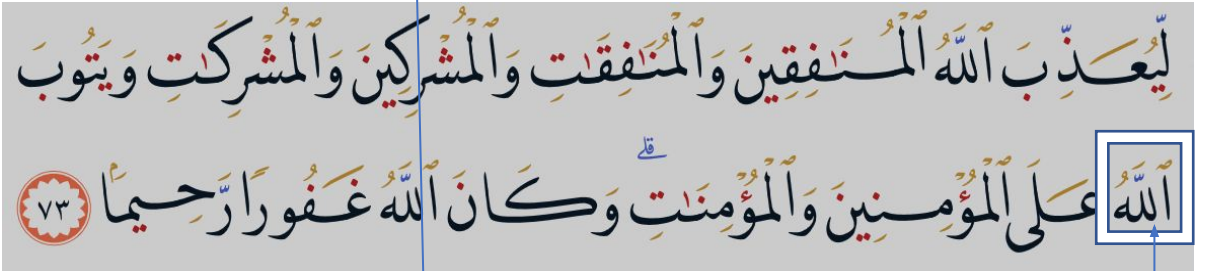 لِّيُعَذِّبَ ٱللَّهُ ٱلْمُنَٰفِقِينَ وَٱلْمُنَٰفِقَٰتِ وَٱلْمُشْرِكِينَ وَٱلْمُشْرِكَٰتِ وَيَتُوبَ
ٱللَّهُ عَلَى ٱلْمُؤْمِنِينَ وَٱلْمُؤْمِنَٰتِ ۗ وَكَانَ ٱللَّهُ غَفُورًا رَّحِيمًۢا ٧٣